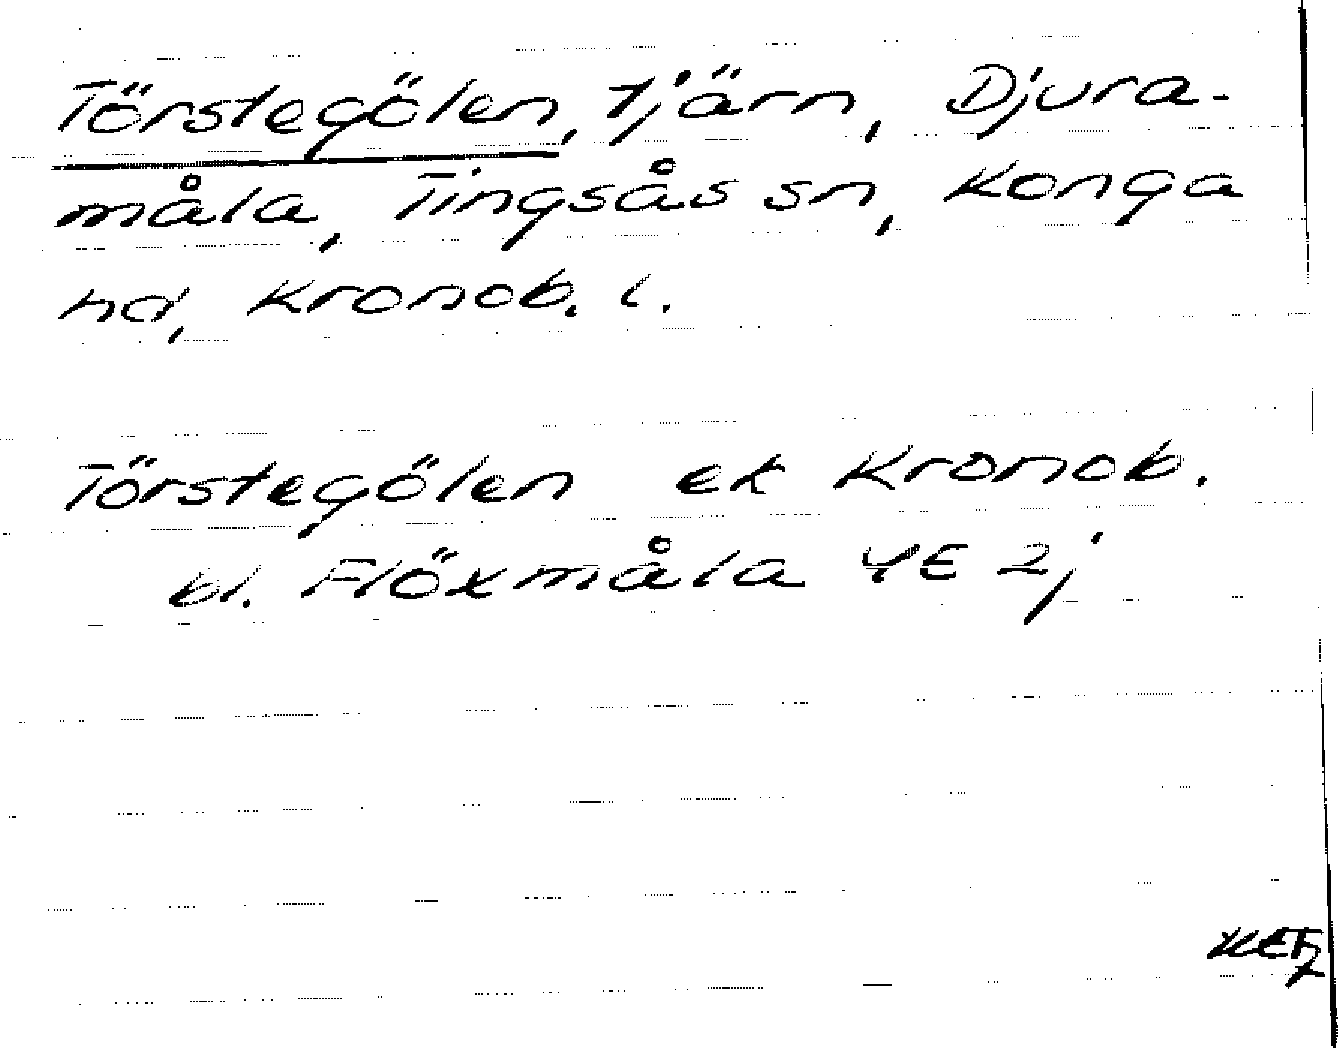 Törstegölen, tjärn, Djura-
måla, Tingsås sn, Konga
hd, Kronob. l.
Törstegölen ek Kronob.
bl. Flöxmåla 4E 2j